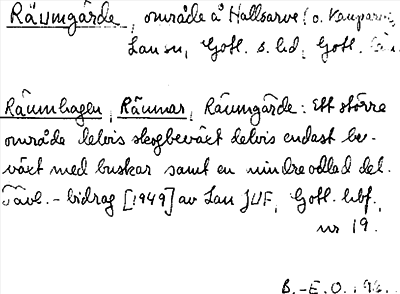 Räumgärde, område å Hallsarve (o. Kauparve)
Lau sn, Gotl. s. hd, Gotl. län.
Räumhagen, Räumar, Räumgärde: Ett större
område delvis skogbeväxt delvis endast be-
växt med buskar samt en mindre odlad del.
Tävl.-bidrag [1949] av Lau JUF, Gotl. hbf.,
nr 19.
B.-E. O.